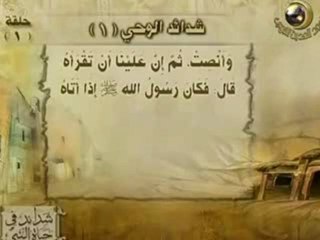 شدائد الوحي (١)
حلقة
(١)
وَأَنْصِتْ، ثُمَّ إِنَّ عَلَيْنَا أَنْ تَقْرَأَهُ
قَالَ: فَكَانَ رَسُولُ اللهِ ﷺ إِذَا أَتَاهُ
شدائد في
حياة النبي